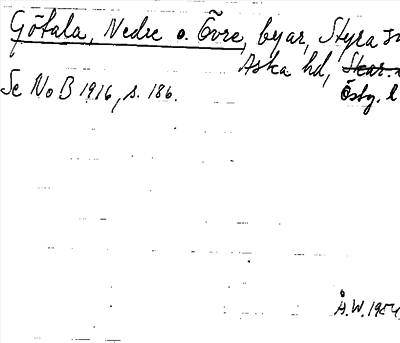 Götala, Nedre o. Övre, byar, Styra
Aska hd, Skar.
Östg. l
Se NoB 1916, s. 186.
Å.W. 1954